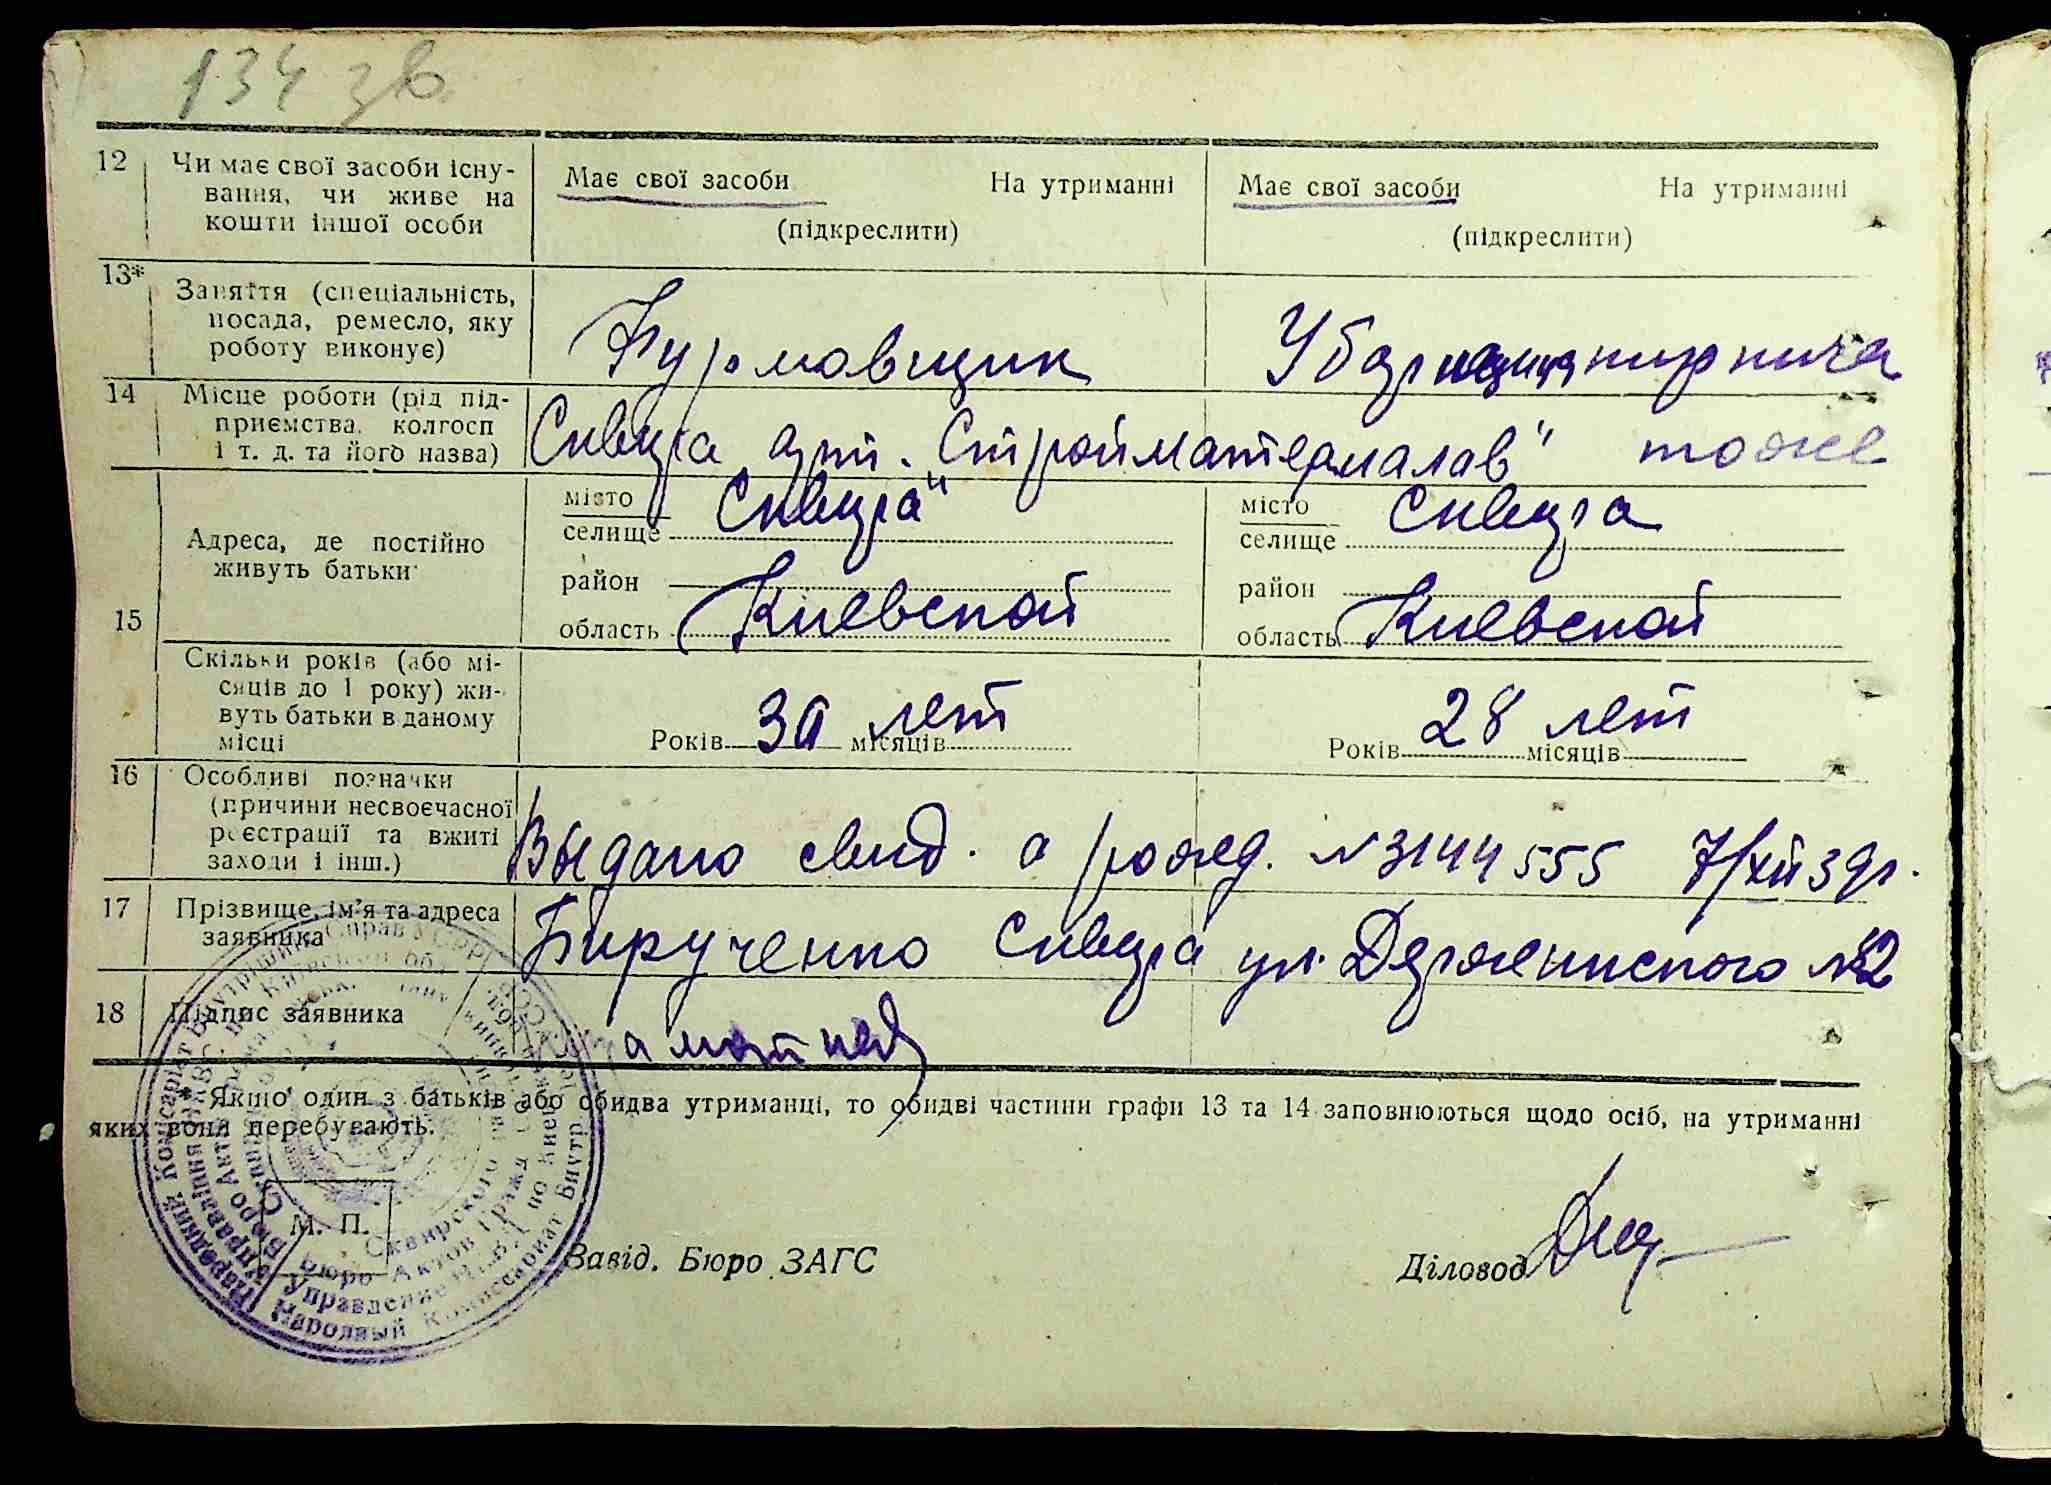 134 зв
12 Чи має свої засоби існу- Має свої засоби На утриманні Має свої засоби На утриманні
вання, чи живе на
кошти іншої особи (підкреслити) (підкреслити)
13* Заняття (спеціальність,
посада, ремесло, яку
роботу виконує) Фурмовщик Уборщица кирпича
14 Місце роботи (рід під-
приємства, колгосп
і т. д. та його назва) Сквира арт. "Стройматериалов" тоже
15 Адреса, де постійно
живуть батьки
місто Сквира місто Сквира
селище селище
район район
область Киевской область Киевской
Скільки років (або мі-
сяців до 1 року) жи-
вуть батьки в даному
місці Років 30 лет місяців Років 28 лет місяців
16 Особливі позначки
(причини несвоєчасної
реєстрації та вжиті
заходи і інш.) Выдано свид. о рожд. №3144555 7/XII 39г.
17 Прізвище, ім'я та адреса
заявника Бирученко Сквира ул. Дзержинского №2
18 Підпис заявника
* Якщо один з батьків або обидва утриманці, то обидві частини графи 13 та 14 заповнюються щодо осіб, на утриманні
яких вони перебувають.
М. П.
Завід. Бюро ЗАГС Діловод
Народний Комісаріат Внутрішніх Справ УСРР
Бюро Актов Гражд.
Сквирского
Народный Комиссариат Внутр.